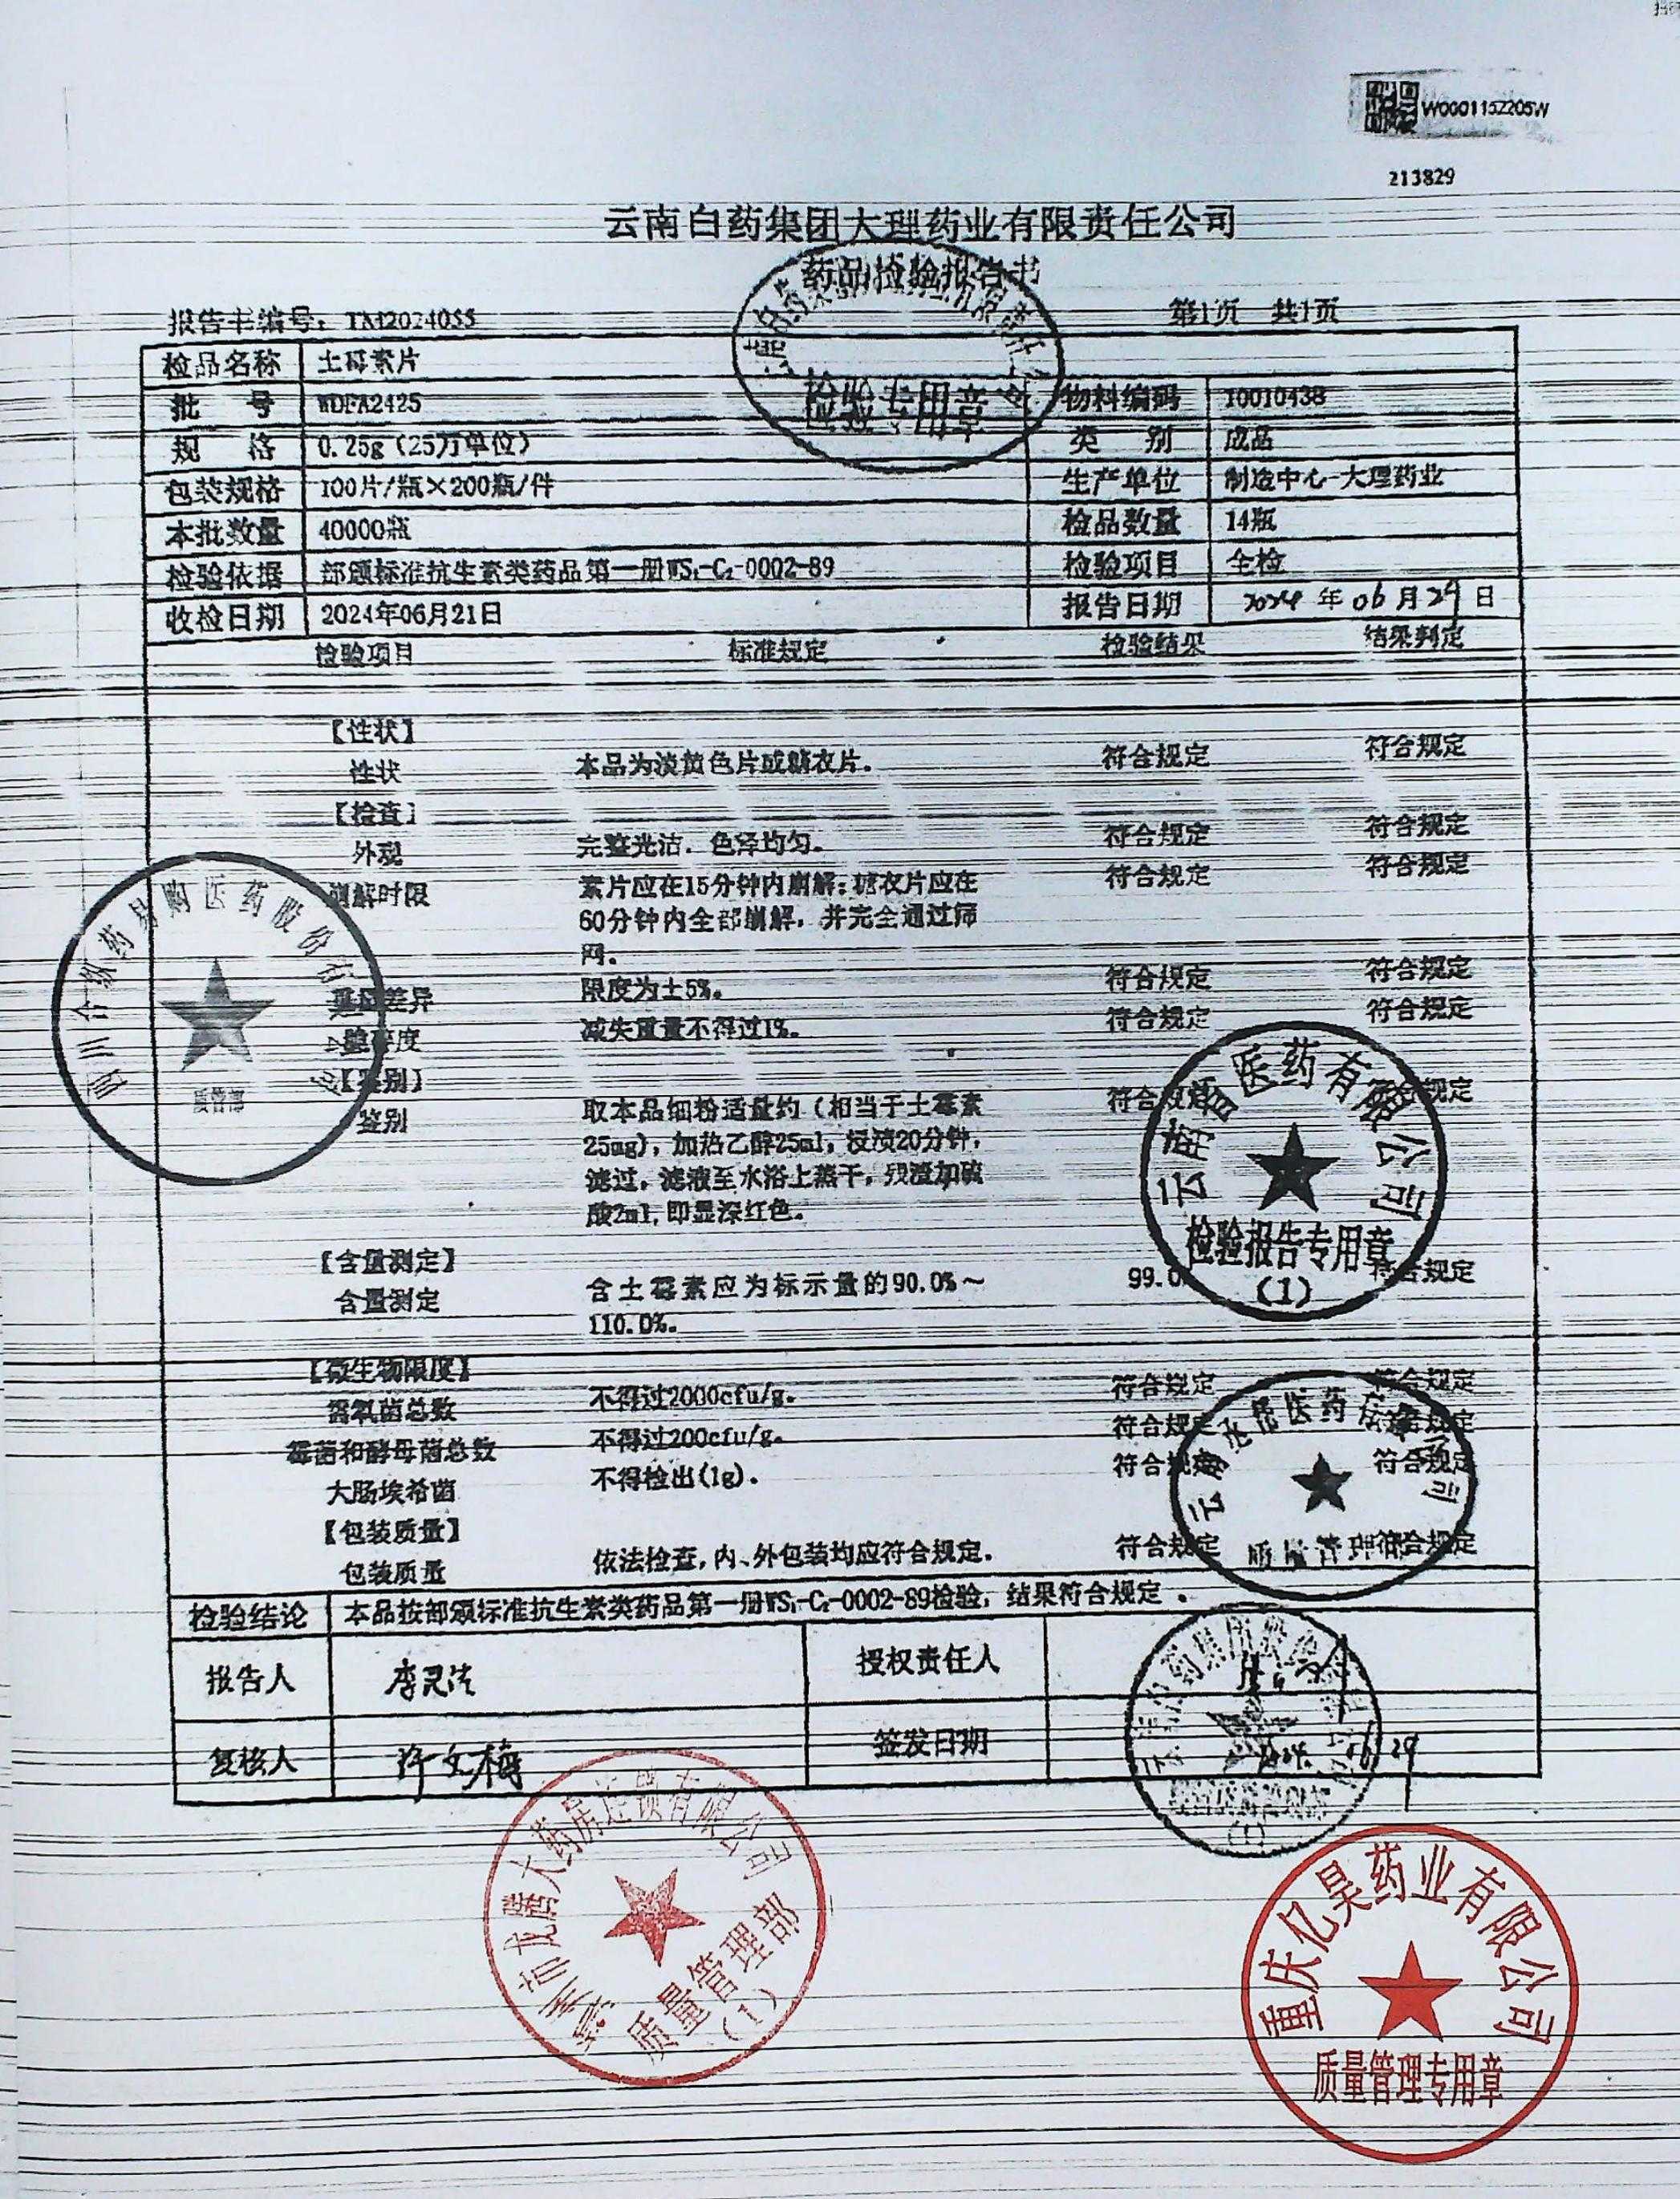 W000115Z205W
213829
云南白药集团大理药业有限责任公司
药品检验报告书
报告书编号：TM2024055 第1页 共1页
检品名称 土霉素片
批 号 WDFA2425 物料编码 10010438
规 格 0.25g（25万单位） 类 别 成品
包装规格 100片/瓶×200瓶/件 生产单位 制造中心-大理药业
本批数量 40000瓶 检品数量 14瓶
检验依据 部颁标准抗生素类药品第一册WS₁-C₂-0002-89 检验项目 全检
收检日期 2024年06月21日 报告日期 2024年06月29日
检验项目 标准规定 检验结果 结果判定
【性状】
性状 本品为淡黄色片或糖衣片。 符合规定 符合规定
【检查】
外观 完整光洁，色泽均匀。 符合规定 符合规定
崩解时限 素片应在15分钟内崩解；糖衣片应在 符合规定 符合规定
60分钟内全部崩解，并完全通过筛
网。
重量差异 限度为±5%。 符合规定 符合规定
脆碎度 减失重量不得过1%。 符合规定 符合规定
【鉴别】
鉴别 取本品细粉适量约（相当于土霉素 符合规定 规定
25mg），加热乙醇25ml，浸渍20分钟，
滤过，滤液至水浴上蒸干，残渣加硫
酸2ml，即显深红色。
【含量测定】
含量测定 含土霉素应为标示量的90.0%～ 99.0 符合规定
110.0%。
【微生物限度】
需氧菌总数 不得过2000cfu/g。 符合规定 符合规定
霉菌和酵母菌总数 不得过200cfu/g。 符合规定 符合规定
大肠埃希菌 不得检出(1g)。 符合规定 符合规定
【包装质量】
包装质量 依法检查，内、外包装均应符合规定。 符合规定 符合规定
检验结论 本品按部颁标准抗生素类药品第一册WS₁-C₂-0002-89检验，结果符合规定。
报告人 授权责任人
复核人 许文梅 签发日期
检验专用章
四川合纵药易购医药股份有
质管部
云南省医药有限公司
检验报告专用章
(1)
质量管理部
大药房连锁有限公司
质量管理部
(1)
重庆亿昊药业有限公司
质量管理专用章